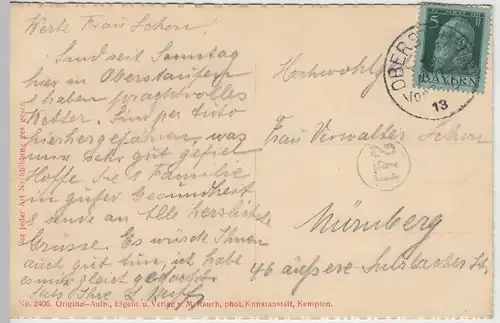 Werte Frau Schorn!
Sind seit Samstag
hier in Oberstaufen
& haben prachtvolles
Wetter. Sind per Auto
hierhergefahren, was
mir sehr gut gefiel
Hoffe Sie & Familie
in guter Gesundheit
& sende an Alle herzliche
Grüsse. Es würde Ihnen
auch gut tun, ich habe
es mir gleich gedacht.
Ihre
Hochwohlg
Frau Verwalter Schorn
Nürnberg
46 äussere Sulzbacher St.
5
BAYERN
OBERST
13
Vor jeder Art Nachbildung ges. gesch.
No. 2406. Original-Aufn., Eigent. u. Verlag v. M. Rauch, phot. Kunstanstalt, Kempten.